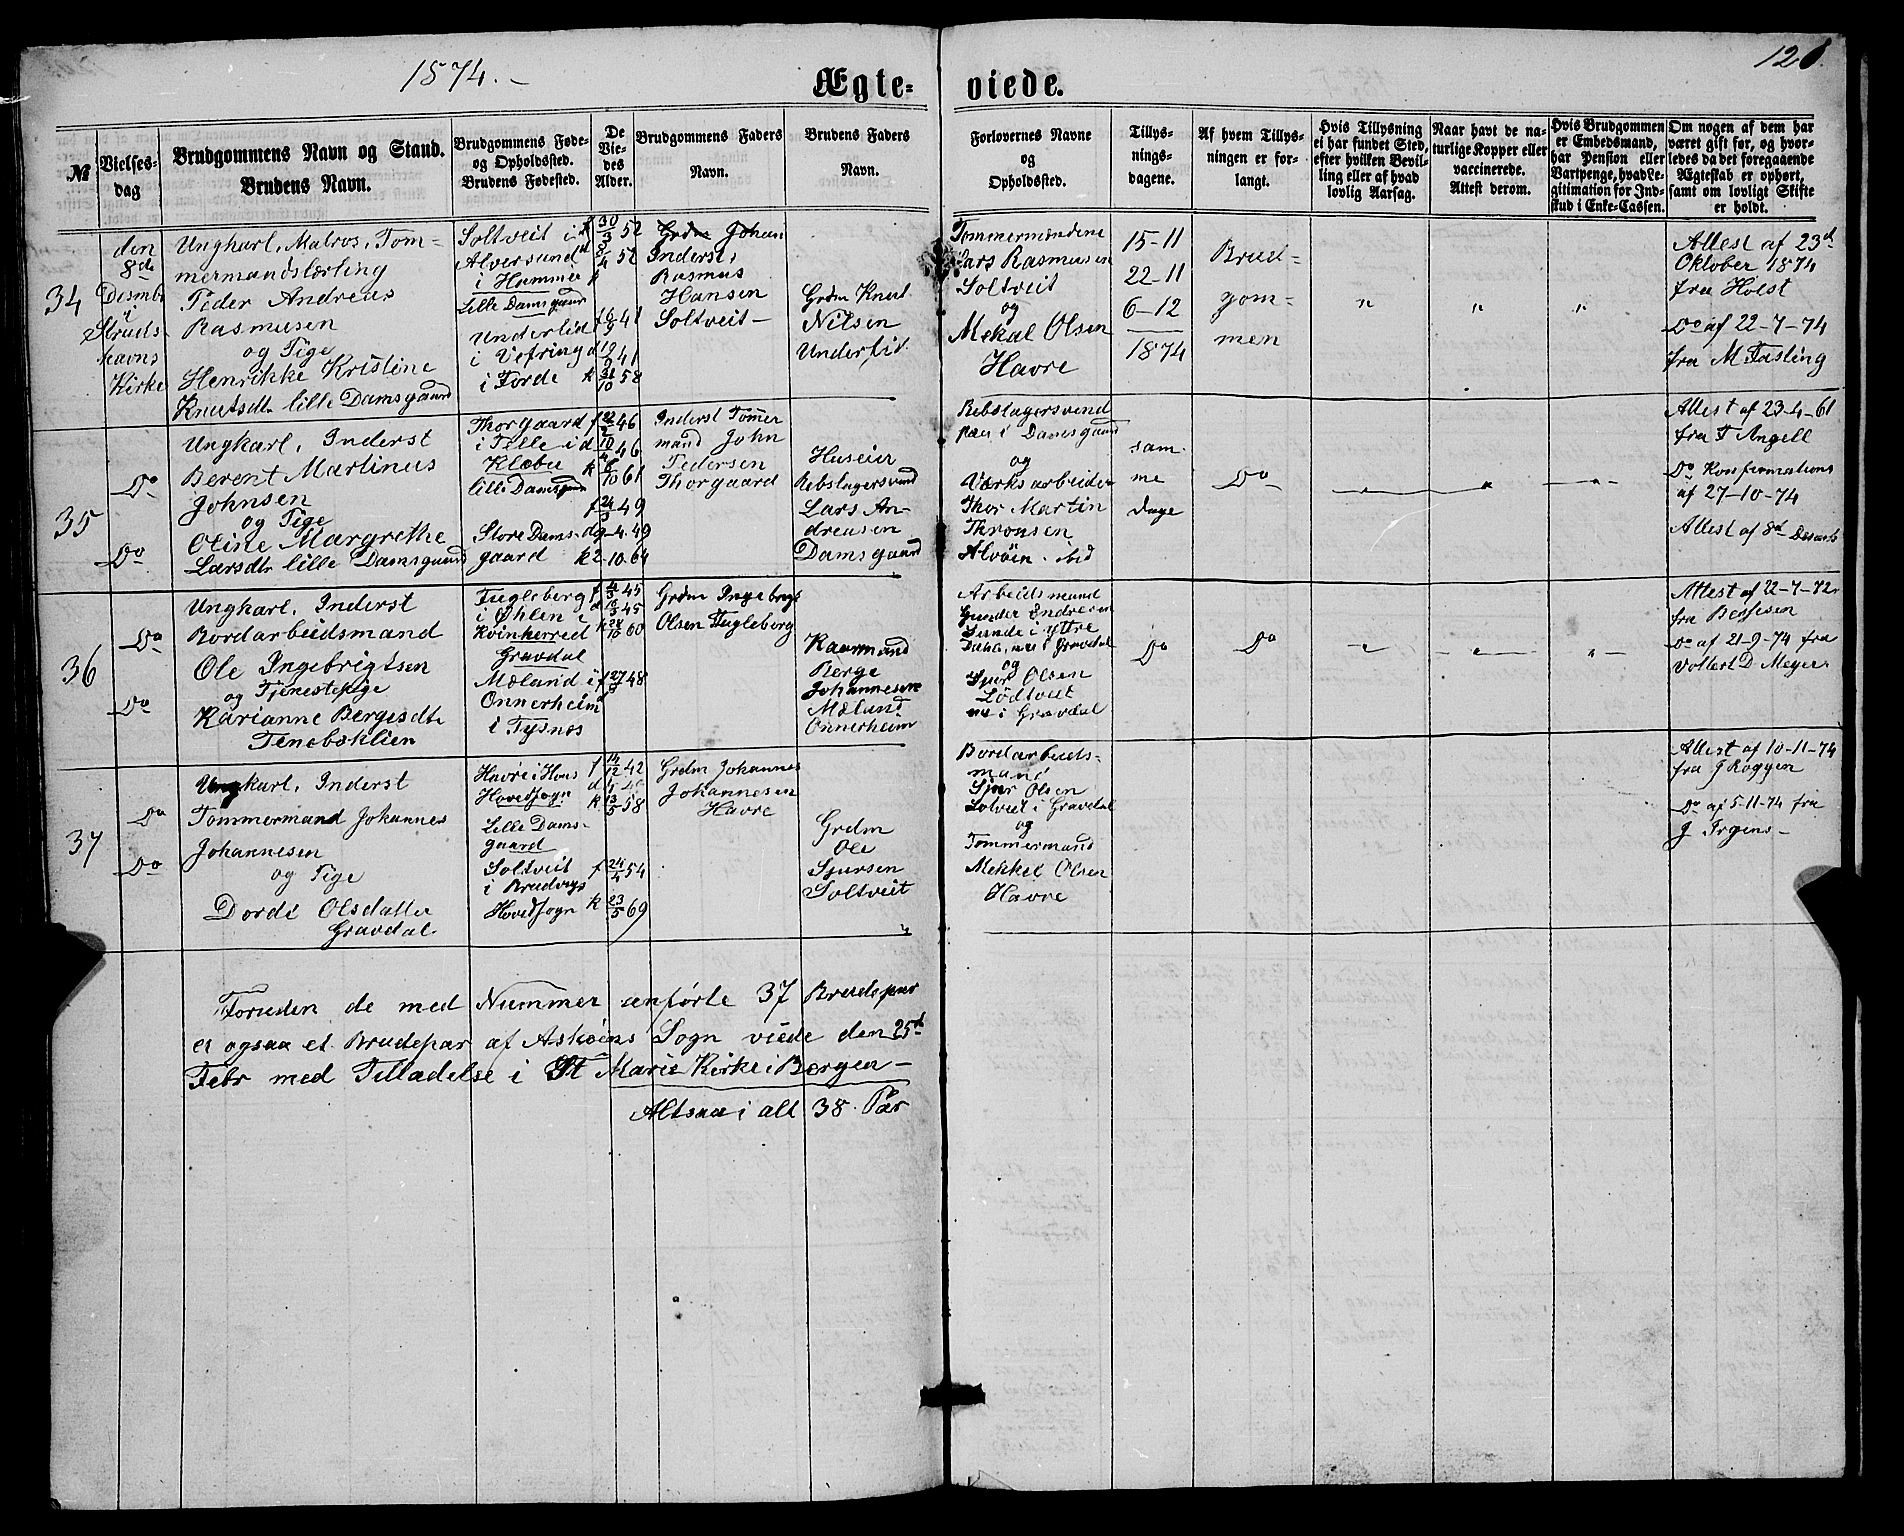 1874.-
Ægte-
viede.
128.
№
Vielses-
dag
Brudgommens Navn og Stand.
Brudens Navn.
Brudgommens Føde-
og Opholdssted.
Brudens Fødested.
De
Vie-
des
Alder.
Brudgommens Faders
Navn.
Brudens Faders
Navn.
Forlovernes Navne
og
Opholdssted.
Tillys-
nings-
dagene.
Af hvem Tillys-
ningen er for-
langt.
Hvis Tillysning
ei har fundet Sted,
efter hvilken Bevil-
ling eller af hvad
lovlig Aarsag.
Naar havt de na-
turlige Kopper eller
vaccinerede.
Attest derom.
Hvis Brudgommen
er Embedsmand,
har Pension eller
Vartpenge, hvad Le-
gitimation for Ind-
skud i Enke-Cassen.
Om nogen af dem har
været gift før, og hvor-
ledes da det foregaaende
Ægteskab er ophørt,
samt om lovligt Skifte
er holdt.
34
den
8de
Desmb
i
Struds-
havns
Kirke
Ungkarl, Matros, Tøm-
mermandslærling
Peder Andreas
Rasmusen
og Pige
Henrikke Kristine
Knutsdt. lille Damsgaard
Soltveit i
Alversund
i Hammer
Lille Damsgaard
Underlid
i Vefring
i Førde
f 30/3 52
d 8/4 52
k
f 6/9 41
d 19/9 41
k 31/10 58
Grdm Johan
Inderst,
Rasmus
Hansen
Soltveit-
Grdm Knut
Nilsen
Underlid
Tømmermændene
Lars Rasmusen
Soltveit
og
Mekal Olsen
Havre
15-11
22-11
6-12
1874
Brud-
gom-
men
" " "
Attest af 23d
Oktober 1874
fra Holst
Do af 22-7-74
fra M Fasting
35
Do
Do
Ungkarl, Inderst
Berent Martinus
Johnsen
og Pige
Oline Margrethe
Larsdt. lille Damsgaard
Thorgaard
i Tille i
Klæbu
lille Damsgaard
Store Dams-
gaard
46
46
k 6/10 61
f 24/3 49
d 9-4-49
k 2-10-64
Inderst Tømmer
mand John
Pedersen
Thorgaard
Huseier
Rebslagersvend
Lars An-
dreasen
Damsgaard
Rebslagersvend
paa i Damsgaard
og
Værksarbeider
Thor Martin
Thronsen
Alvøen ibid
sam-
me
Dage
Do
Attest af 23-4-61
fra F Angell
Do Konfirmations
af 27-10-74
Attest af 8d Desemb
36
Do
Do
Ungkarl, Inderst
Bordarbeidsmand
Ole Ingebrigtsen
og Tjenestepige
Karianne Bergesdt.
Fugleberg
i Øhlen i
Kvinherred
Gravdal
Mæland i
Onnerheim
i Tysnes
45
45
k 28/10 60
48
Grdm Ingebrigt
Olsen Fugleberg
Kaarmand
Berge
Johannesen
Mæland
Onnerheim
Arbeidsmand
Gunder Endresen
Sunde i Ytre
Dahl, nu i Gravdal
og
Sjur Olsen
Lødtveit
nu i Gravdal
Do
Do
Attest af 22-7-72
fra Bessesen
Do af 21-9-74 fra
Vollert D Meyer
37
Do
Do
Ungkarl, Inderst
Tømmermand Johannes
Johannesen
og Pige
Dorde Olsdatter
Gravdal
Havre i Hous
Hovedsogn
Lille Dams-
gaard
Soltveit
i Brudvigs
Hovedsogn
f 14/12 42
d
k 13/5 58
f 24/4 54
k 23/5 69
Grdm Johannes
Johannesen
Havre
Grdm
Ole
Sjursen
Soltveit
Bordarbeids-
mand
Sjur Olsen
Solveit i Gravdal
og
Tømmermand
Mekkel Olsen
Havre
Attest af 10-11-74
fra J Roggen
Do af 5-11-74 fra
J Irgens-
Foruden de med Nummer anførte 37 Brudepar
er ogsaa et Brudepar af Askøens Sogn viede den 25d
Febr med Tilladelse i St Marie Kirke i Bergen-
Altsaa i alt 38 Par